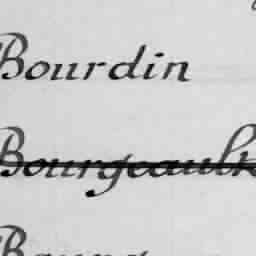 Bourdin
Bourgeault